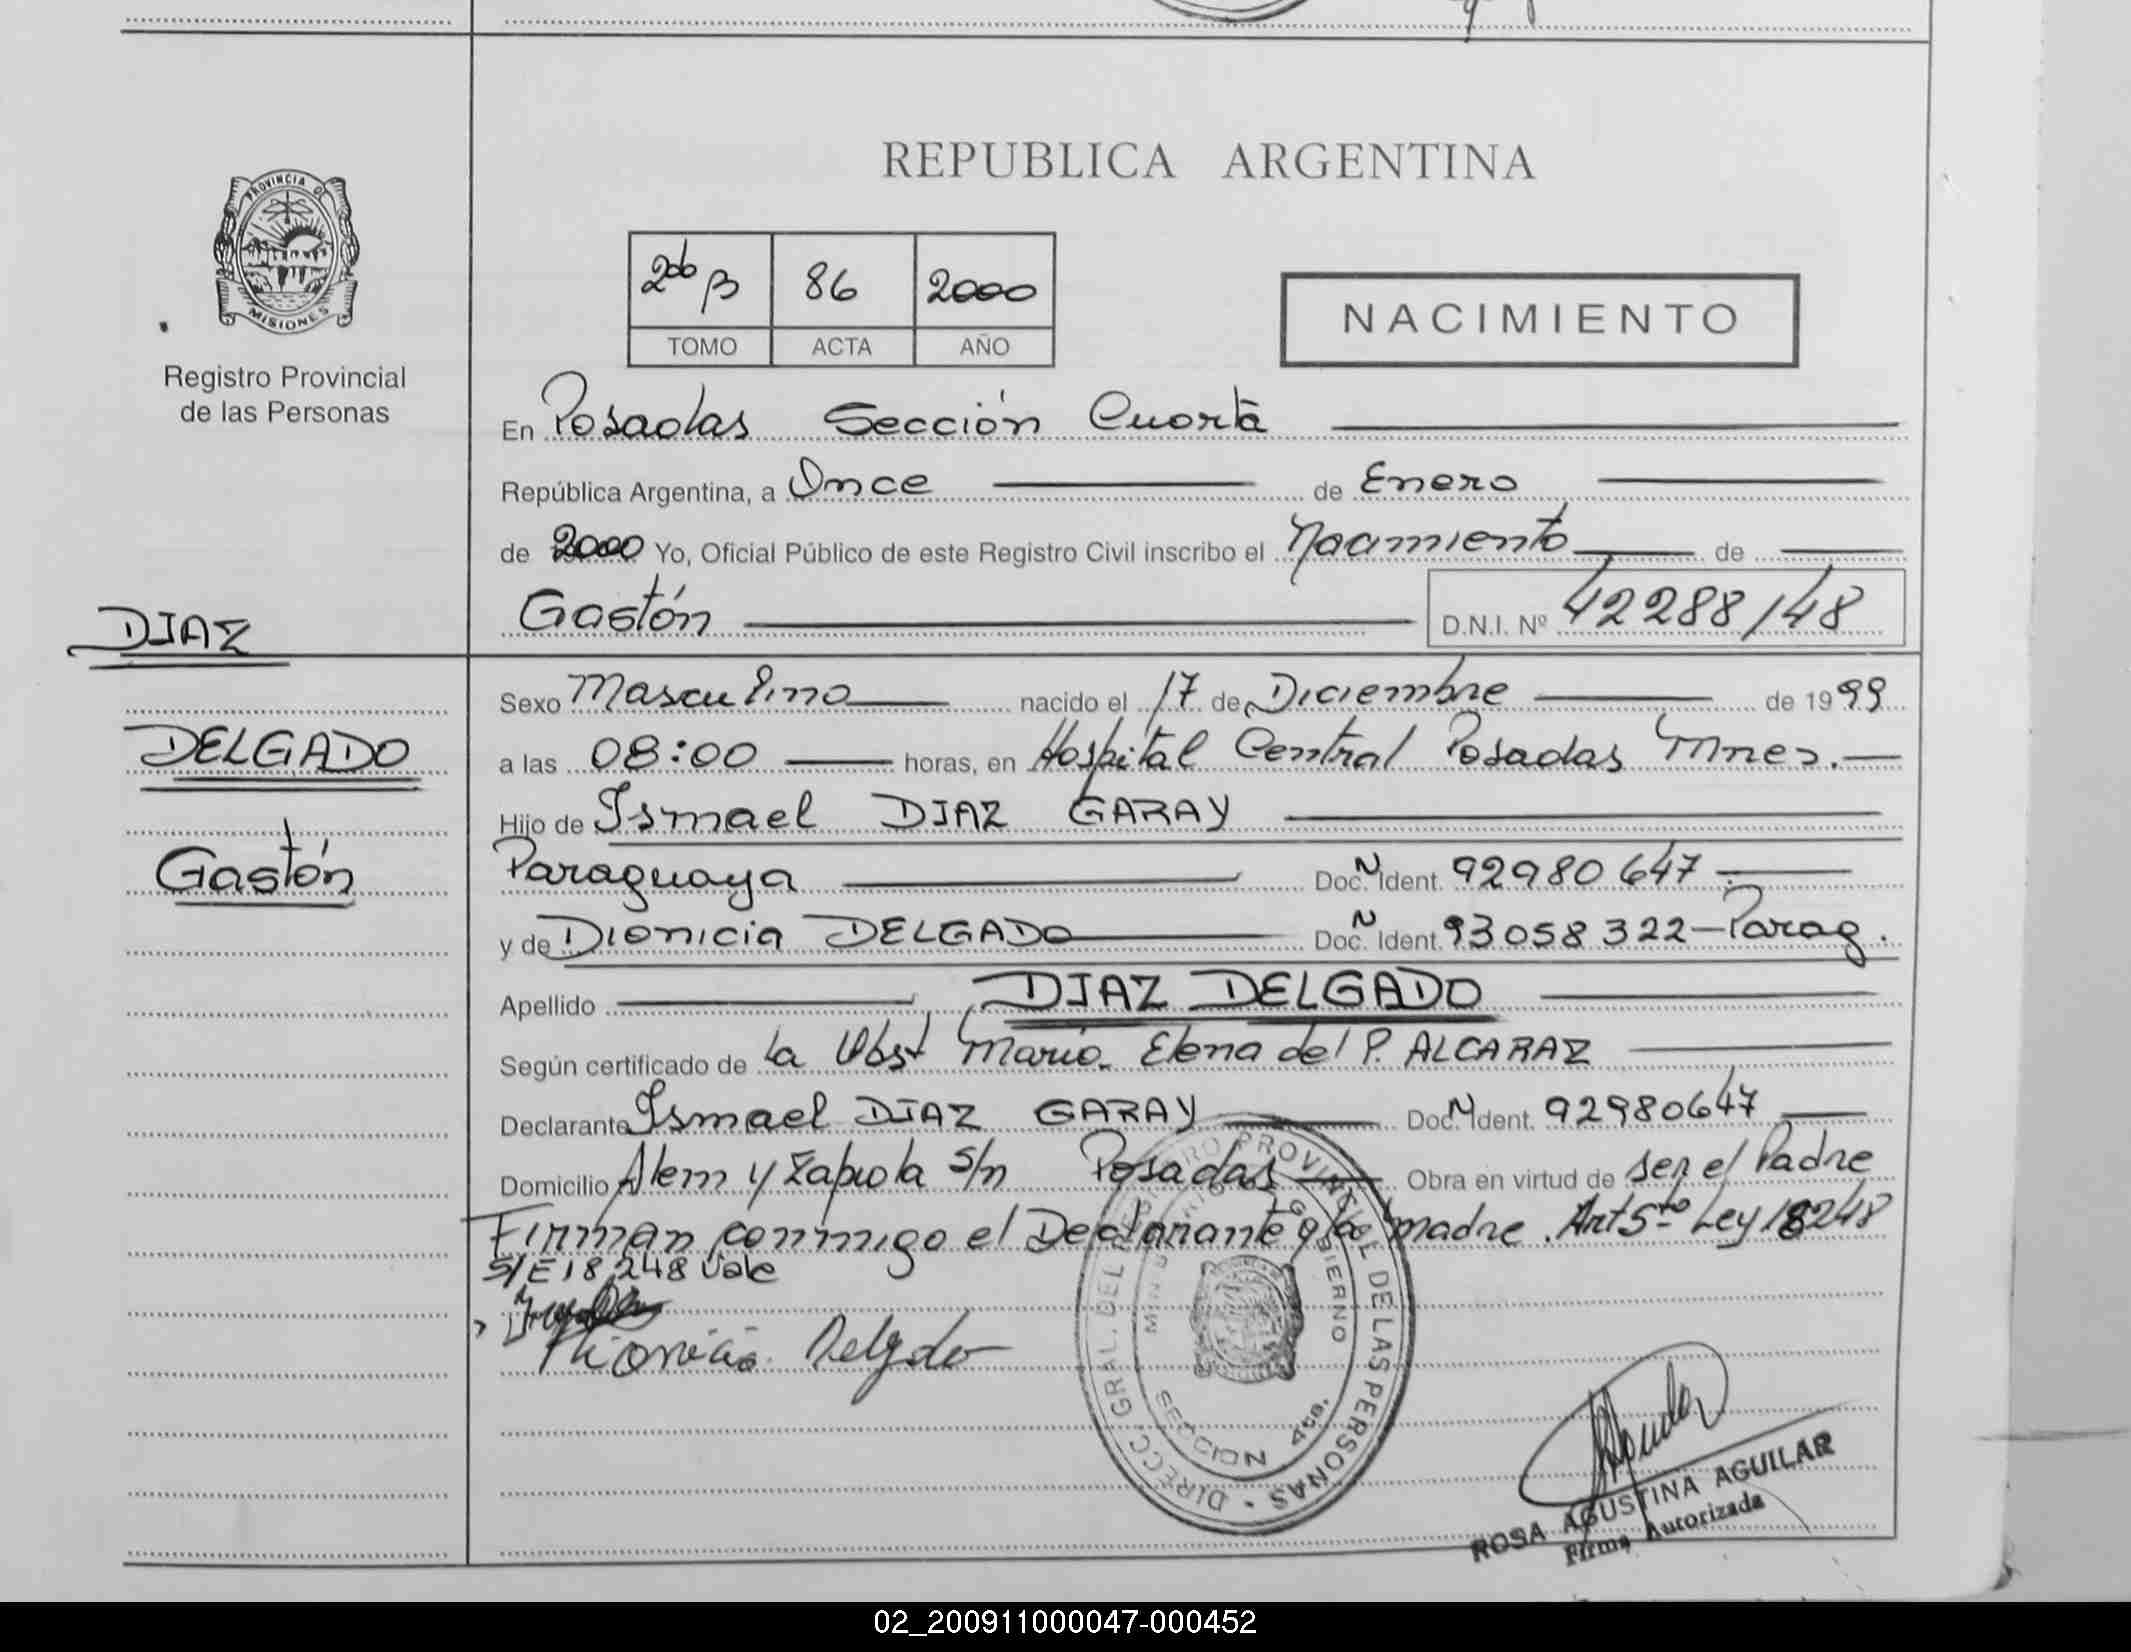 REPUBLICA ARGENTINA
PROVINCIA D
MISIONES
Registro Provincial
de las Personas
2do B 86 2000
TOMO ACTA AÑO
NACIMIENTO
En Posadas Sección Cuarta
República Argentina, a Once de Enero
de 2000 Yo, Oficial Público de este Registro Civil inscribo el Nacimiento de
Gastón D.N.I. Nº 42288148
DIAZ
DELGADO
Gastón
Sexo Masculino nacido el 17 de Diciembre de 1999
a las 08:00 horas, en Hospital Central Posadas Mnes.
Hijo de Ismael DIAZ GARAY
Paraguaya Doc. N Ident. 92980647
y de Dionicia DELGADO Doc. N Ident. 93058322-Parag.
Apellido DIAZ DELGADO
Según certificado de la Obst Maria Elena del P. ALCARAZ
Declarante Ismael DIAZ GARAY Doc. N Ident. 92980647
Domicilio Alem y Zapiola S/n Posadas Obra en virtud de ser el Padre
Firman conmigo el Declarante y la madre. Art 5to Ley 18248
S/E 18.248 Vale
Dionicia Delgado
DIRECC. GRAL. DEL REGISTRO PROVINCIAL DE LAS PERSONAS
MINISTERIO DE GOBIERNO
SECCION 4ta.
ROSA AGUSTINA AGUILAR
Firma Autorizada
02_200911000047-000452